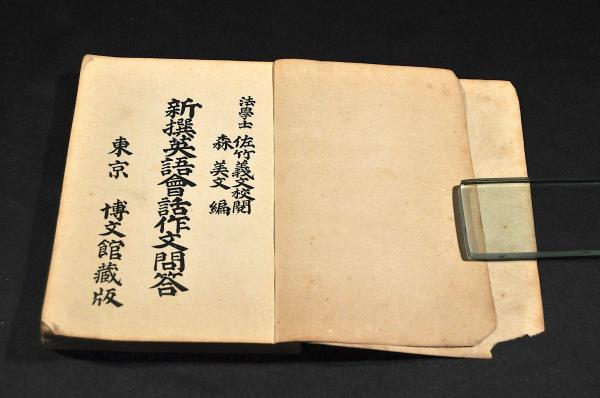 法學士 佐竹義文校閲
森美文編
新撰英語會話作文問答
東京 博文館藏版